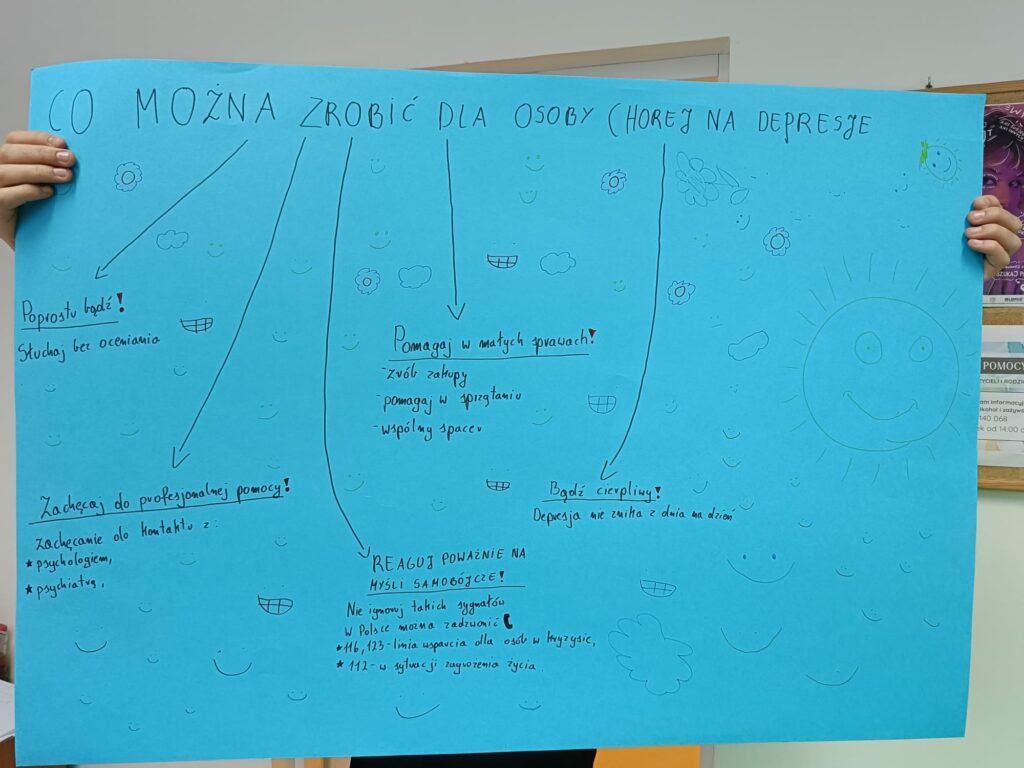 CO MOŻNA ZROBIĆ DLA OSOBY CHOREJ NA DEPRESJE
Poprostu bądź!
Słuchaj bez oceniania
Pomagaj w małych sprawach!
-zrób zakupy
-pomagaj w sprzątaniu
-wspólny spacer
Zachęcaj do profesjonalnej pomocy!
Zachęcanie do kontaktu z:
*psychologiem,
*psychiatrą,
Bądź cierpliwy!
Depresja nie znika z dnia na dzień
REAGUJ POWAŻNIE NA
MYŚLI SAMOBÓJCZE!
Nie ignoruj takich sygnałów
W Polsce można zadzwonić
*116,123-linia wsparcia dla osób w kryzysie,
*112-w sytuacji zagrożenia życia.
POMOCY
140 068
od 14:00